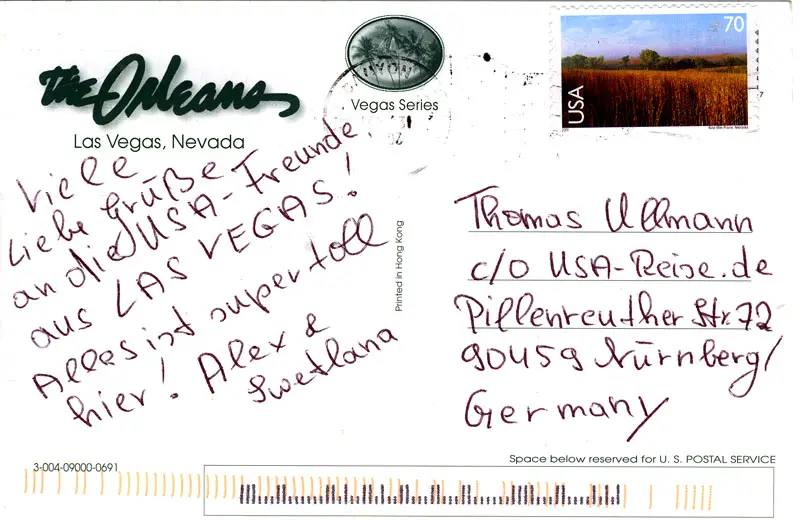 The Orleans
Las Vegas, Nevada
Vegas Series
70
USA
Viele
liebe Grüße
an die USA-Freunde
aus LAS VEGAS!
Alles ist super toll
hier! Alex &
Swetlana
Printed in Hong Kong
Thomas Ullmann
c/o USA-Reise.de
Pillenreuther Str. 72
90459 Nürnberg/
Germany
3-004-09000-0691
Space below reserved for U. S. POSTAL SERVICE